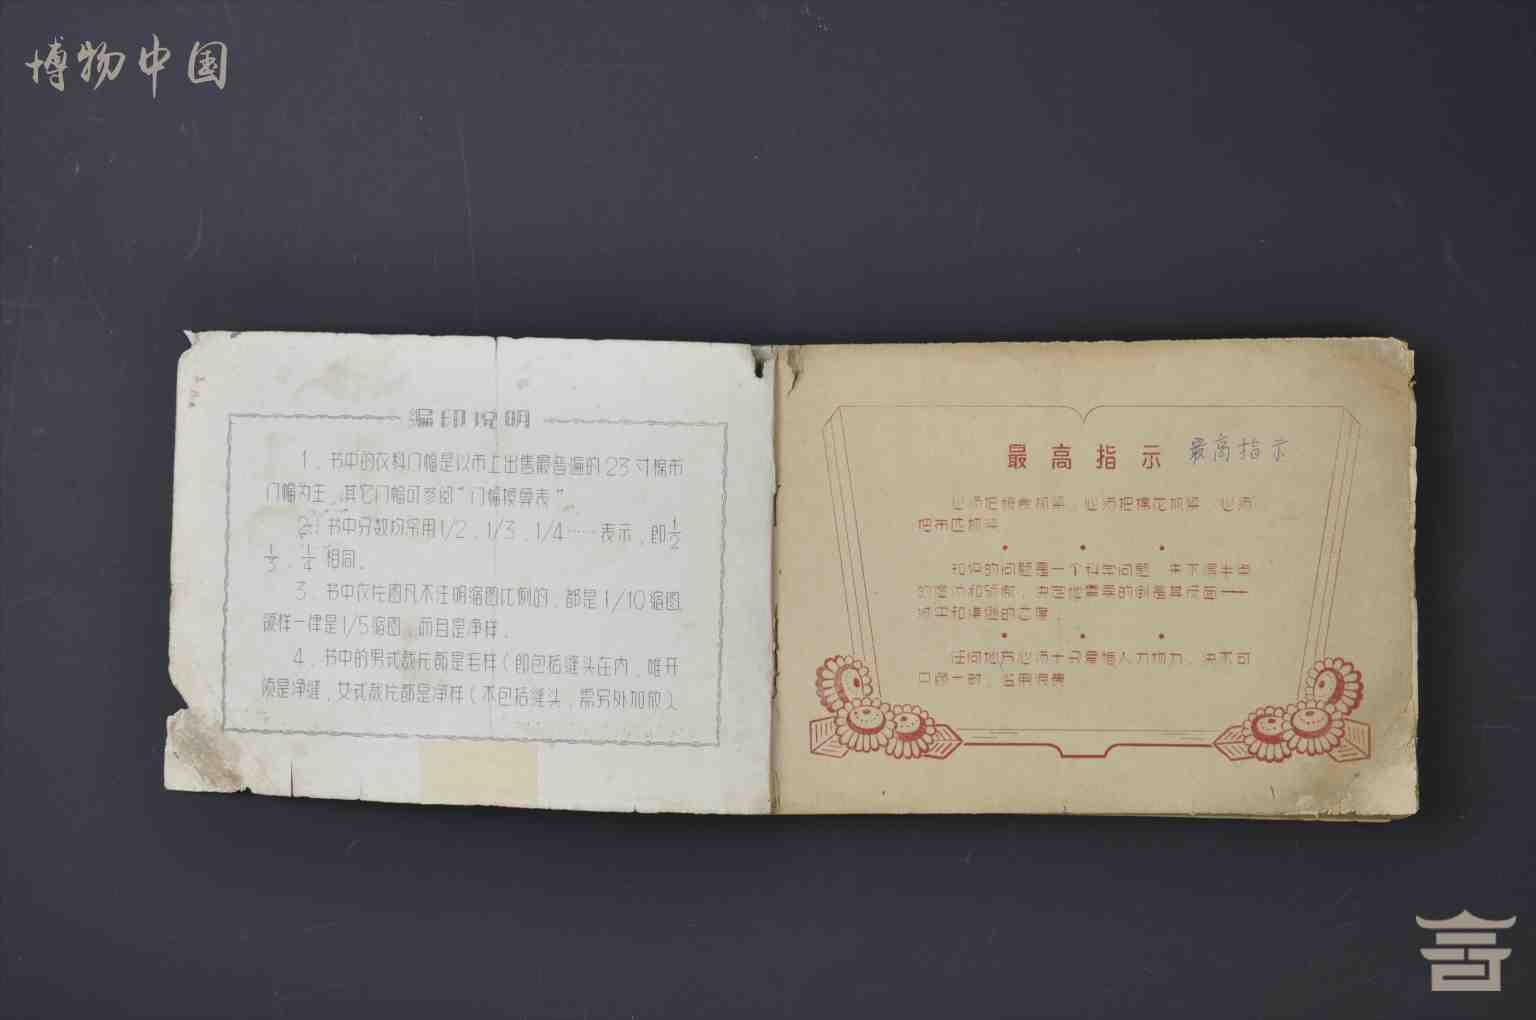 博物中国
编印说明
1．书中的衣料门幅是以市上出售最普遍的23寸棉布
门幅为主，其它门幅可参阅“门幅换算表”
2．书中分数均常用1/2，1/3，1/4……表示，即½
⅓，¼相同。
3．书中衣片图凡不注明缩图比例的，都是1/10缩图，
领样一律是1/5缩图，而且是净样。
4．书中的男式裁片都是毛样（即包括缝头在内，唯开
领是净缝，女式裁片都是净样（不包括缝头，需另外加放）
最高指示 最高指示
必须把粮食抓紧，必须把棉花抓紧，必须
把布匹抓紧
知识的问题是一个科学问题，来不得半点
的虚伪和骄傲，决定地需要的倒是其反面——
诚实和谦逊的态度。
任何地方必须十分爱惜人力物力，决不可
只顾一时，滥用浪费